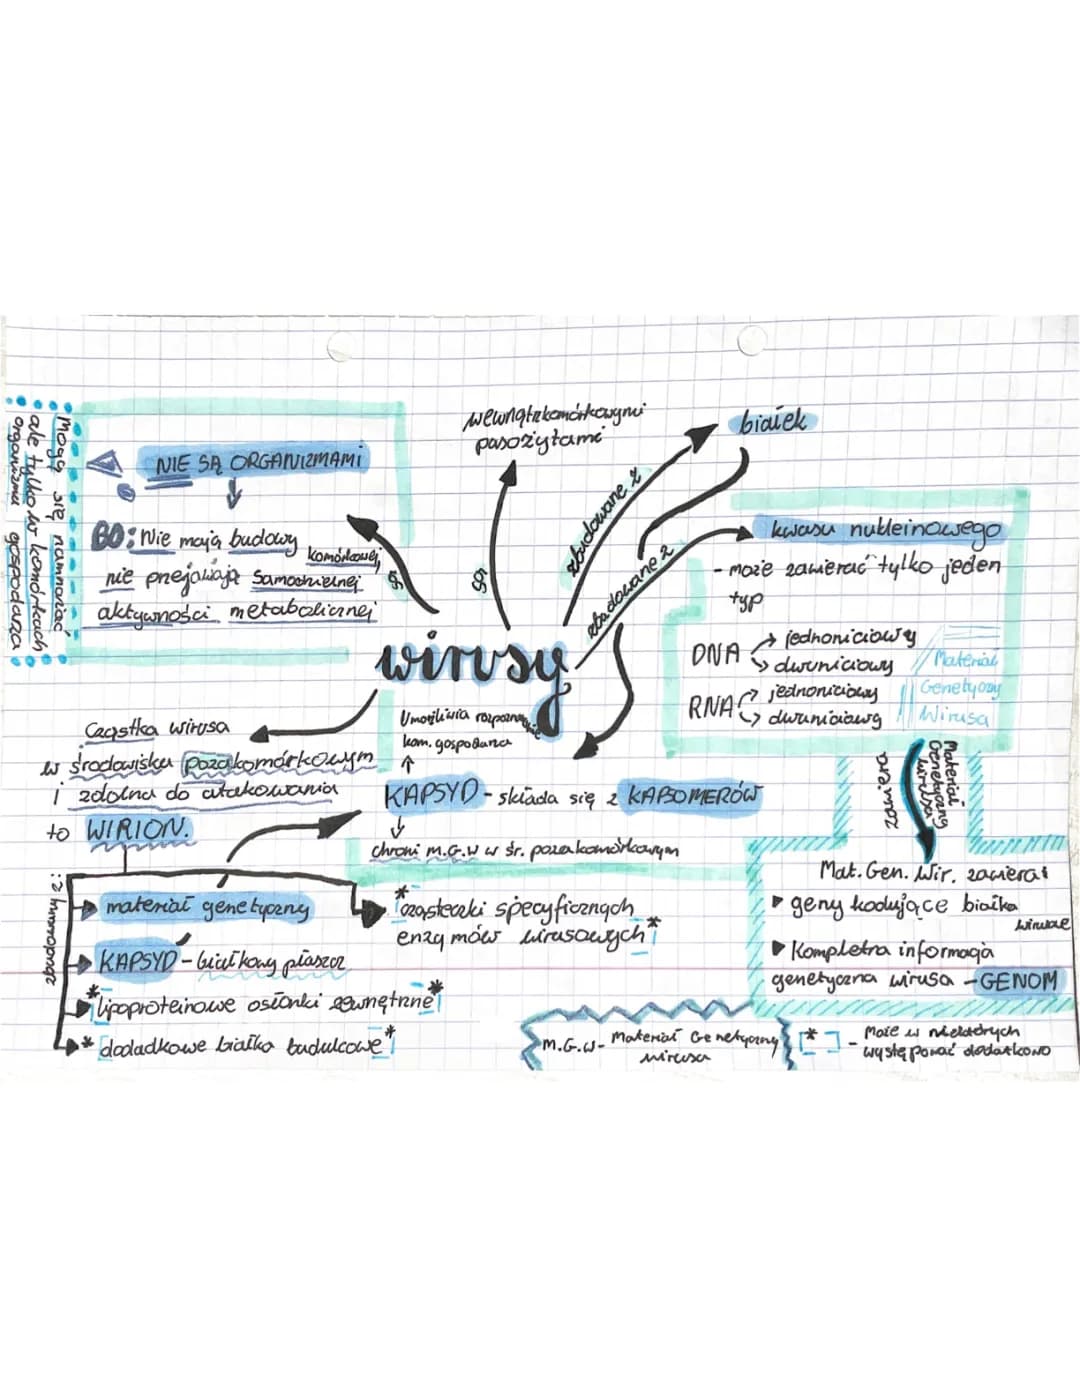 wewnątrzkomórkowymi
pasożytami
białek
Mogą się namnażać
ale tylko w komórkach
organizmu gospodarza
NIE SĄ ORGANIZMAMI
BO: Nie mają budowy
komórkowej,
nie przejawiają samodzielnej
aktywności metabolicznej
są
są
zbudowane z
zbudowane z
kwasu nukleinowego
- może zawierać tylko jeden
typ
DNA
jednoniciowy
dwuniciowy
RNA
jednoniciowy
dwuniciowy
Materiał
Genetyczny
Wirusa
wirusy
Cząstka wirusa
w środowisku pozakomórkowym
i zdolna do atakowania
to WIRION.
Umożliwia rozpoznanie
kom. gospodarza
KAPSYD - składa się z KAPSOMERÓW
chroni m.G.W w śr. pozakomórkowym
zawiera
Materiał
Genetyczny
wirusa
Mat. Gen. Wir. zawiera:
geny kodujące białka
wirusa
Kompletna informacja
genetyczna wirusa - GENOM
zbudowany z:
materiał genetyczny
KAPSYD - białkowy płaszcz
* lipoproteinowe osłonki zewnętrzne *
* dodadkowe białka budulcowe *
* cząsteczki specyficznych
enzymów wirusowych *
M.G.W - Materiał Genetyczny
wirusa
[*] - Może w niektórych
występować dodatkowo